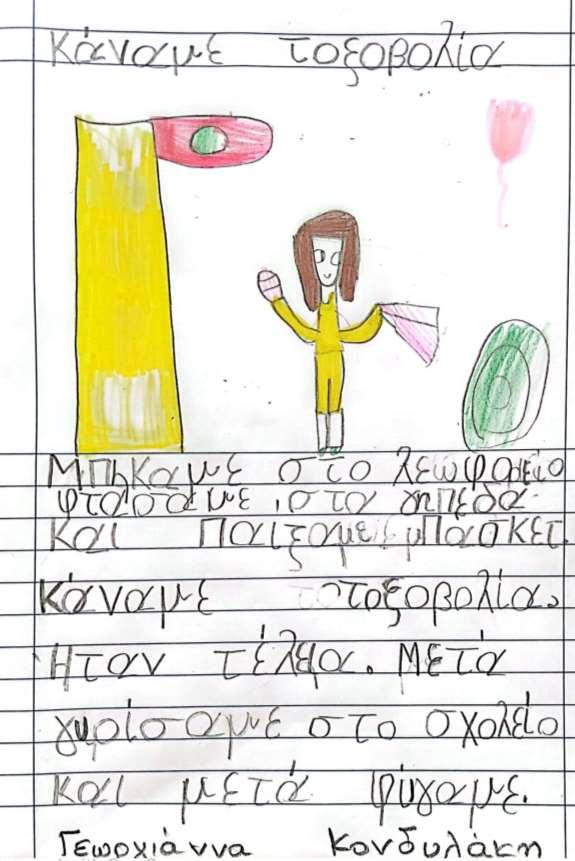 Κάναμε τοξοβολία
Μπήκαμε στο λεωφορείο
φτάσαμε στα γήπεδα
και παίξαμε μπάσκετ.
Κάναμε τοξοβολία.
Ήταν τέλεια. Μετά
γυρίσαμε στο σχολείο
και μετά φύγαμε.
Γεωργιάννα Κονδυλάκη